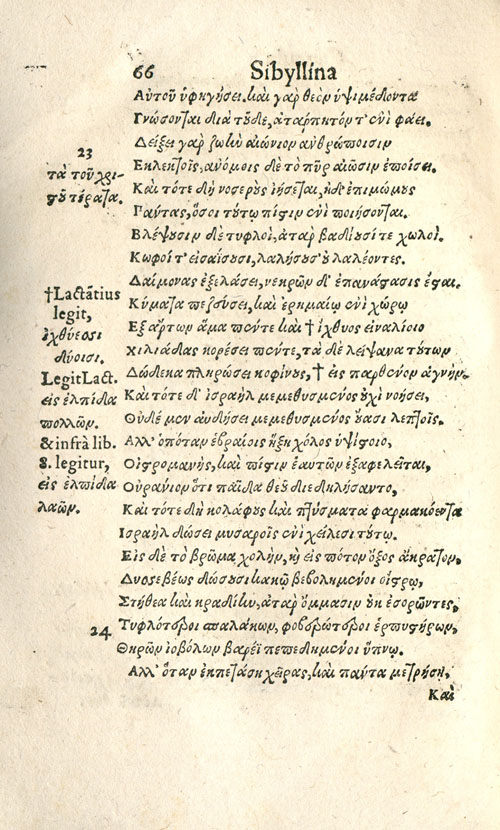 66 Sibyllina
Αὐτοῦ ὑφηγήσει. καὶ γὰρ θεὸν ὑψιμέδοντα
Γνώσονται διὰ τοῦδε, ἀταρπητόν τ' ἐνὶ φάει.
Δείξει γὰρ ζωὴν αἰώνιον ἀνθρώποισιν
Εκλεκτοῖς, ἀνόμοις δὲ τὸ πῦρ αἰῶσιν ἐποίσει.
Καὶ τότε δὴ νοσεροὺς ἰήσεται, ἠδ' ἐπιμώμους
Γαντας, ὅσοι τούτῳ πίστιν ἐνὶ ποιήσονται.
Βλέψουσιν δὲ τυφλοὶ, ἀτὰρ βαδιοῦσί τε χωλοὶ.
Κωφοί τ' εἰσαΐουσι, λαλήσουσ' οὐ λαλέοντες.
Δαίμονας ἐξελάσει, νεκρῶν δ' ἐπανάστασις ἔσται.
Κύματα πεζεύσει, καὶ ἐρημαίῳ ἐνὶ χώρῳ
Εξ ἄρτων ἅμα πέντε καὶ † ἰχθύος εἰναλίοιο
χιλιάδας κορέσει πέντε, τὰ δὲ λείψανα τούτων
Δώδεκα πληρώσει κοφίνους, † εἰς παρθένον ἁγνήν.
Καὶ τότε δ' ἰσραὴλ μεμεθυσμένος οὐχὶ νοήσει,
Οὐδὲ μὲν αὐδήσει μεμεθυσμένος οὔασι λεπτοῖς.
Αλλ' ὁπόταν ἑβραίοις ἥξῃ χόλος ὑψίστοιο,
Οἰστρομανὴς, καὶ πίστιν ἑαυτῶν ἐξαφελεῖται,
Οὐράνιον ὅτι παῖδα θεοῦ διεδηλήσαντο,
Καὶ τότε δὴ κολάφους καὶ πτύσματα φαρμακόεντα
Ισραὴλ δώσει μυσαροῖς ἐνὶ χείλεσι τούτῳ.
Εἰς δὲ τὸ βρῶμα χολὴν, κỳ εἰς πότον ὄξος ἄκρατον,
Δυσσεβέως δώσουσι κακῷ βεβολημένοι οἴστρῳ,
Στήθεα καὶ κραδίην, ἀτὰρ ὄμμασιν οὐκ ἐσορῶντες,
Τυφλότεροι σπαλάκων, φοβερώτεροι ἑρπυστήρων,
Θηρῶν ἰοβόλων βαρέϊ πεπεδημένοι ὕπνῳ.
Αλλ' ὅταν ἐκπετάσῃ χεῖρας, καὶ πάντα μετρήσῃ,
Καὶ
23
τὰ τοῦ χρι-
στοῦ τέρατα.
†Lactātius
legit,
ἰχθύεσσι
δύοισι.
Legit Lact.
εἰς ἐλπίδα
πολλῶν.
& infrà lib.
8. legitur,
εἰς ἐλπίδα
λαῶν.
24